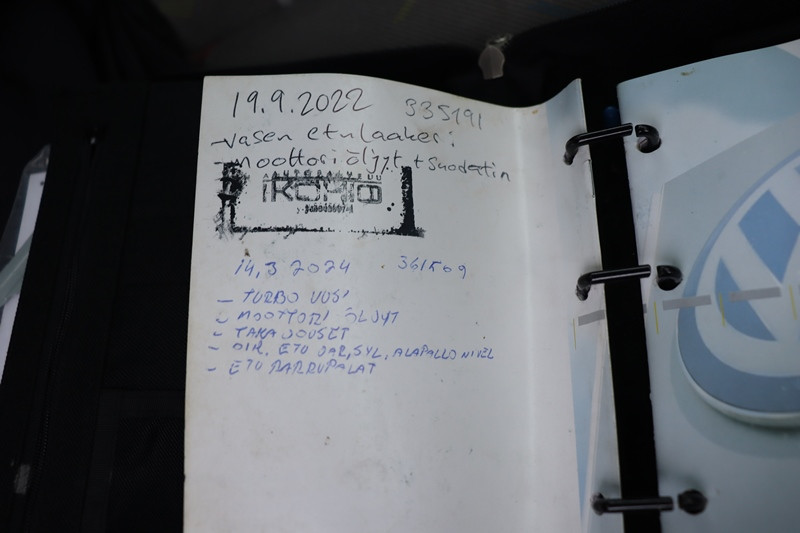 19.9.2022 335191
-vasen etulaakeri
-moottoriöljyt + suodatin
14.3 2024 . 361509
- TURBO UUSI
- MOOTTORI ÖLJYT
- TAKA JOUSET
- OIK. ETU JAR, SYL, ALAPALLONIVEL
- ETU JARRUPALAT